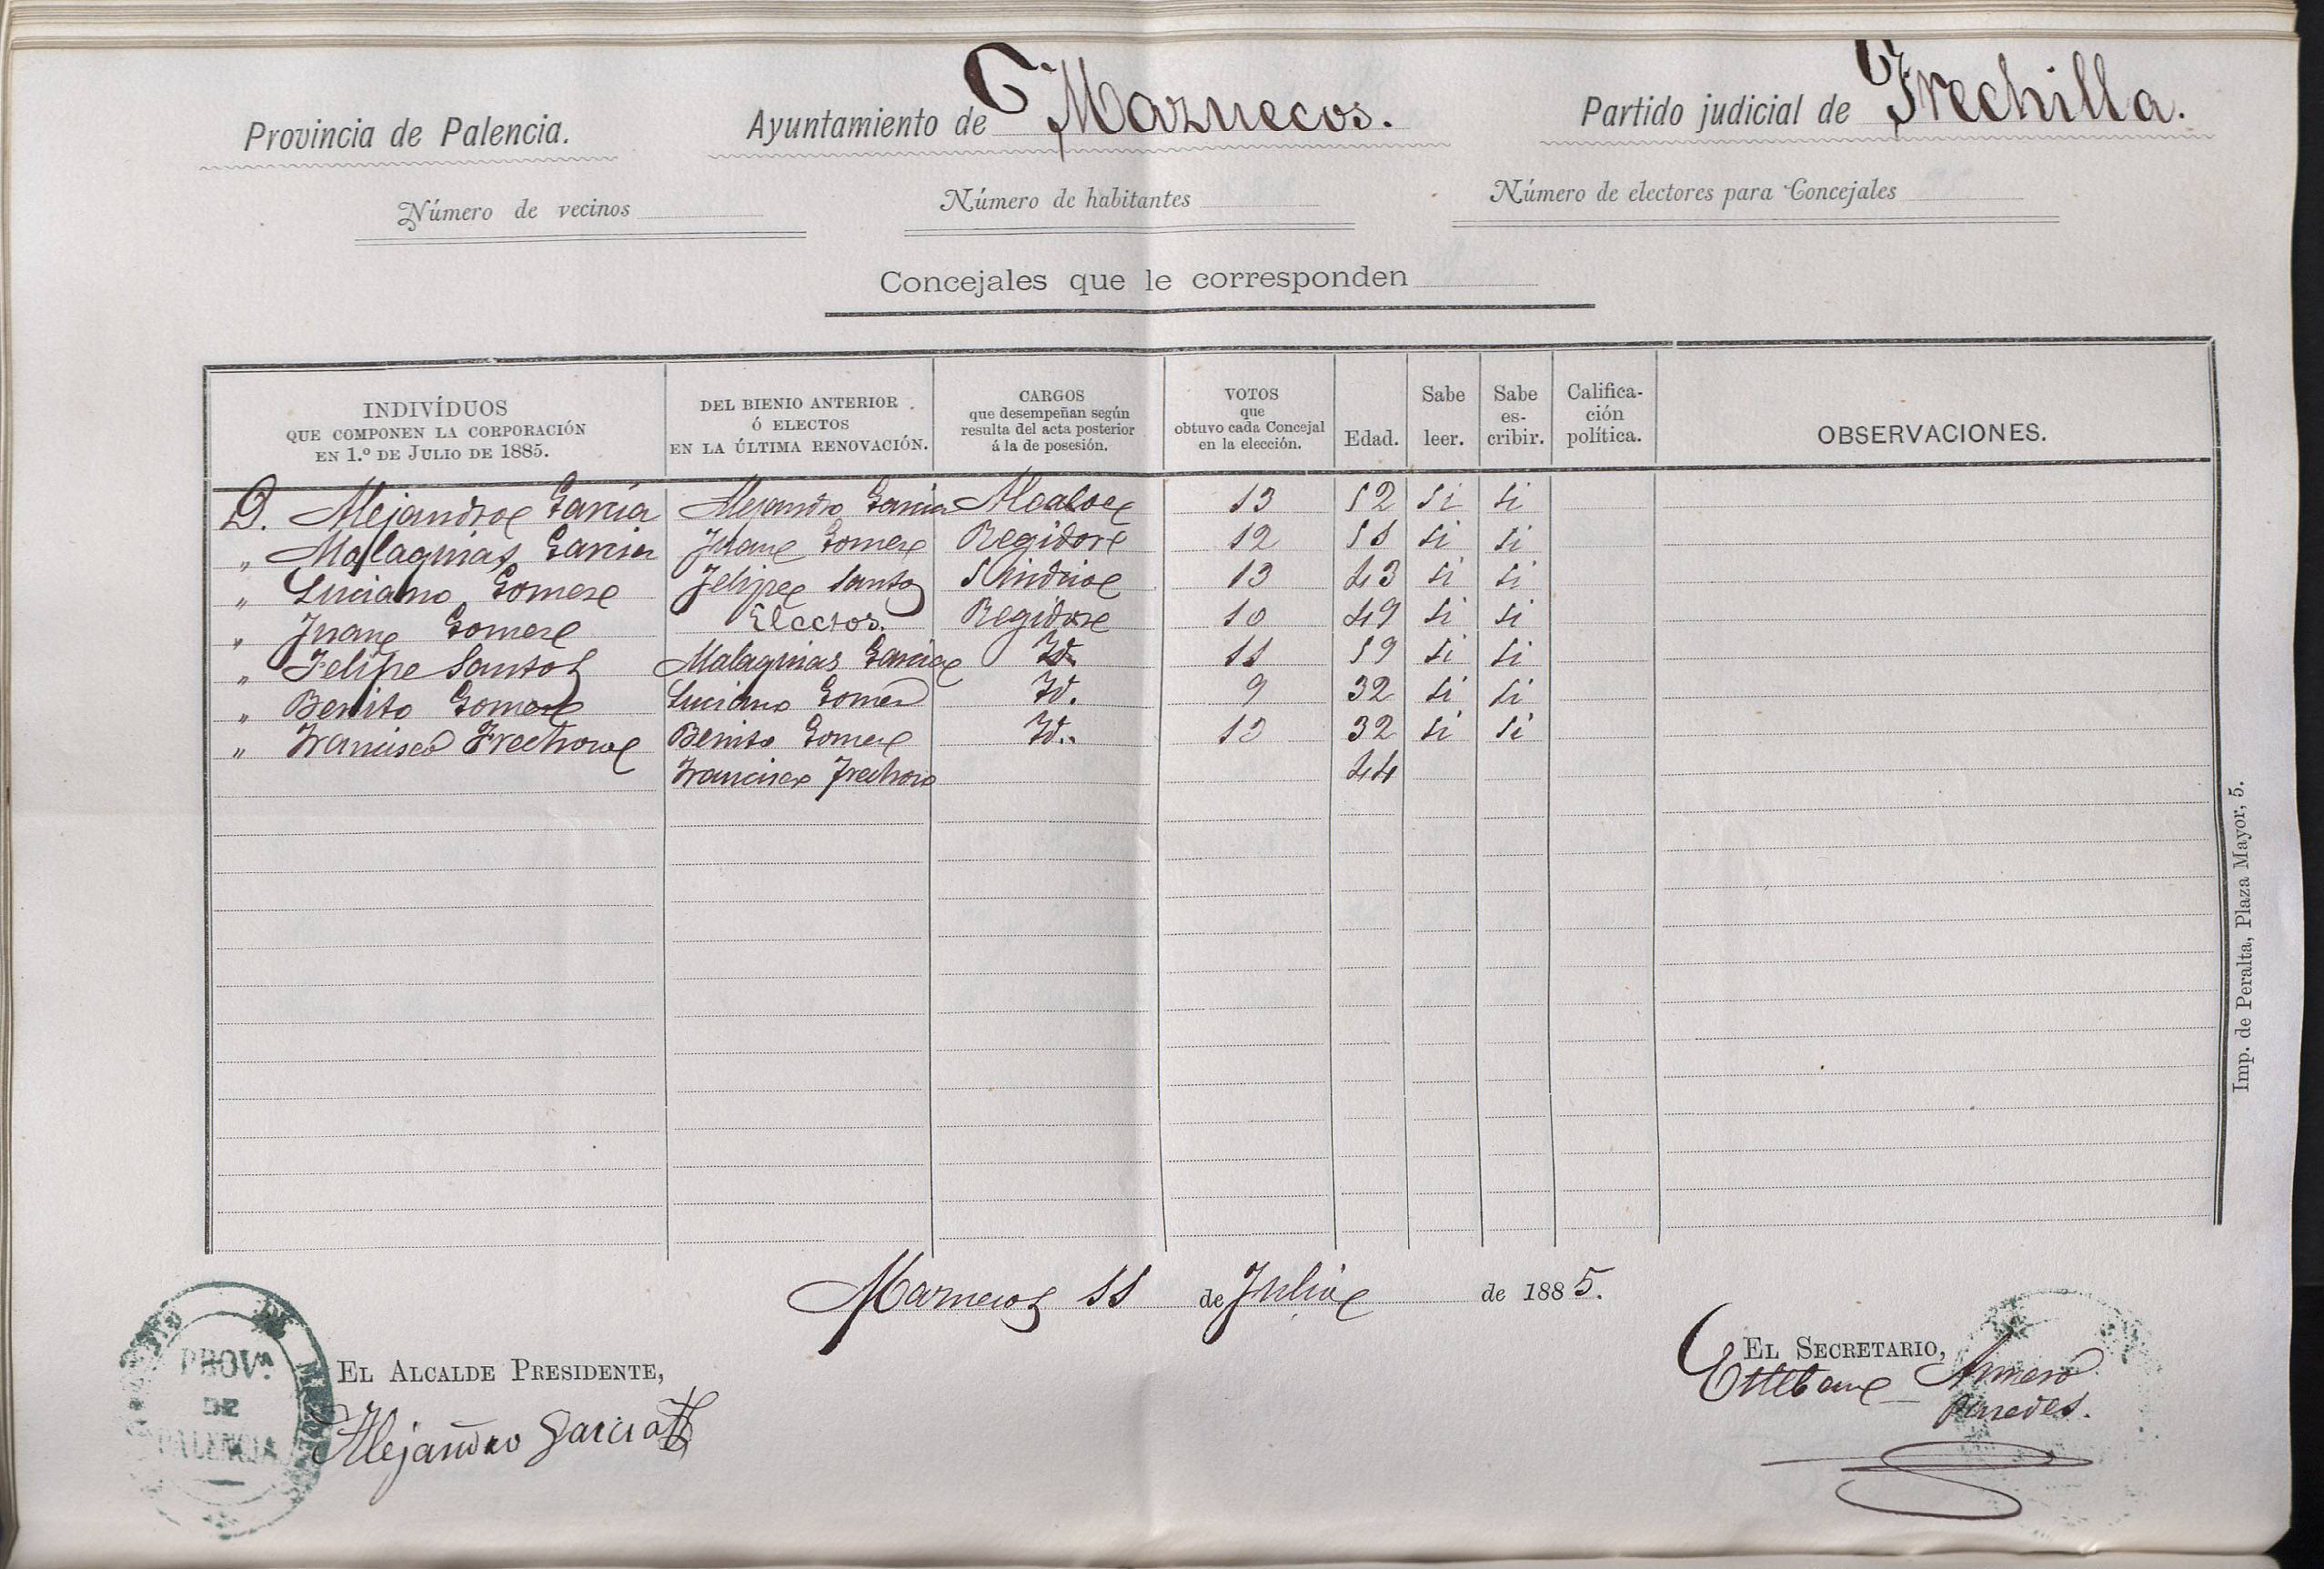 Provincia de Palencia. Ayuntamiento de Mazuecos. Partido judicial de Frechilla.
Número de vecinos Número de habitantes Número de electores para Concejales
Concejales que le corresponden
INDIVÍDUOS
QUE COMPONEN LA CORPORACIÓN
EN 1.º DE JULIO DE 1885.
DEL BIENIO ANTERIOR
Ó ELECTOS
EN LA ÚLTIMA RENOVACIÓN.
CARGOS
que desempeñan según
resulta del acta posterior
á la de posesión.
VOTOS
que
obtuvo cada Concejal
en la elección.
Edad.
Sabe
leer.
Sabe
es-
cribir.
Califica-
ción
política.
OBSERVACIONES.
D. Alejandro Garcia Alejandro Garcia Alcalde 13 52 si si
" Malaquias Garcia Juan Gomez Regidor 12 51 si si
" Luciano Gomez Felipe Santos Sindico 13 43 si si
" Juan Gomez Electos. Regidor 10 49 si si
" Felipe Santos Malaquias Garcia Id. 11 59 si si
" Benito Gomez Luciano Gomez Id. 9 32 si si
" Francisco Frechoso Benito Gomez Id. 13 32 si si
Francisco Frechoso 44
Imp. de Peralta, Plaza Mayor, 5.
Mazuecos 11 de Julio de 1885.
PROVª
DE
PALENCIA
EL ALCALDE PRESIDENTE,
Alejandro Garcia
EL SECRETARIO,
Esteban
Paredes.